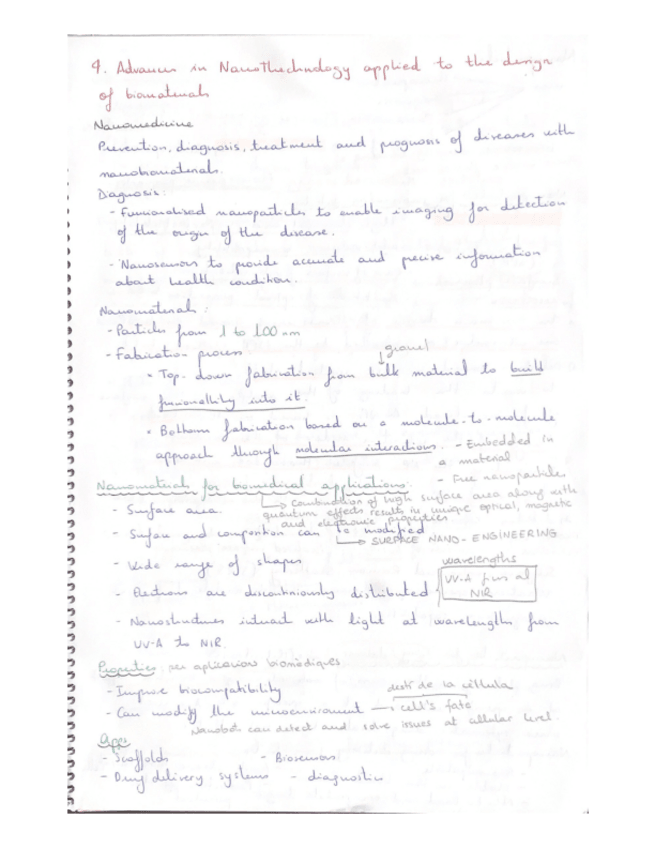 4. Advances in Nanothechnology applied to the design
of biomaterials
Nanomedicine
Prevention, diagnosis, treatment and prognosis of diseases with
nanobiomaterials.
Diagnosis:
- Functionalised nanoparticles to enable imaging for detection
of the origin of the disease.
- Nanosensors to provide accurate and precise information
about health condition.
Nanomaterials:
- Particles from 1 to 100 nm
- Fabrication process
granel
• Top-down fabrication from bulk material to build
funcionallity into it.
• Bothom fabrication based on a molecule-to-molecule
approach through molecular interactions.
- Embedded in
a material
- Free nanoparticles
Nanomaterials for biomedical applications:
- Surface area.
Combination of high surface area along with
quantum effects results in unique optical, magnetic
and electronic properties
- Surface and composition can be modified
SURFACE NANO-ENGINEERING
- Wide range of shapes
wavelengths
- Electrons are discontiniously distributed
UV-A fins al
NIR
- Nanostructures interact with light at wavelengths from
UV-A to NIR.
Properties per aplicacions biomèdiques
- Improve biocompatibility
destí de la cèl·lula
- Can modify the microenviroment → cell's fate
Nanobot can detect and solve issues at cellular level.
Apps
- Scaffolds
- Biosensors
- Drug delivery systems
- diagnostics